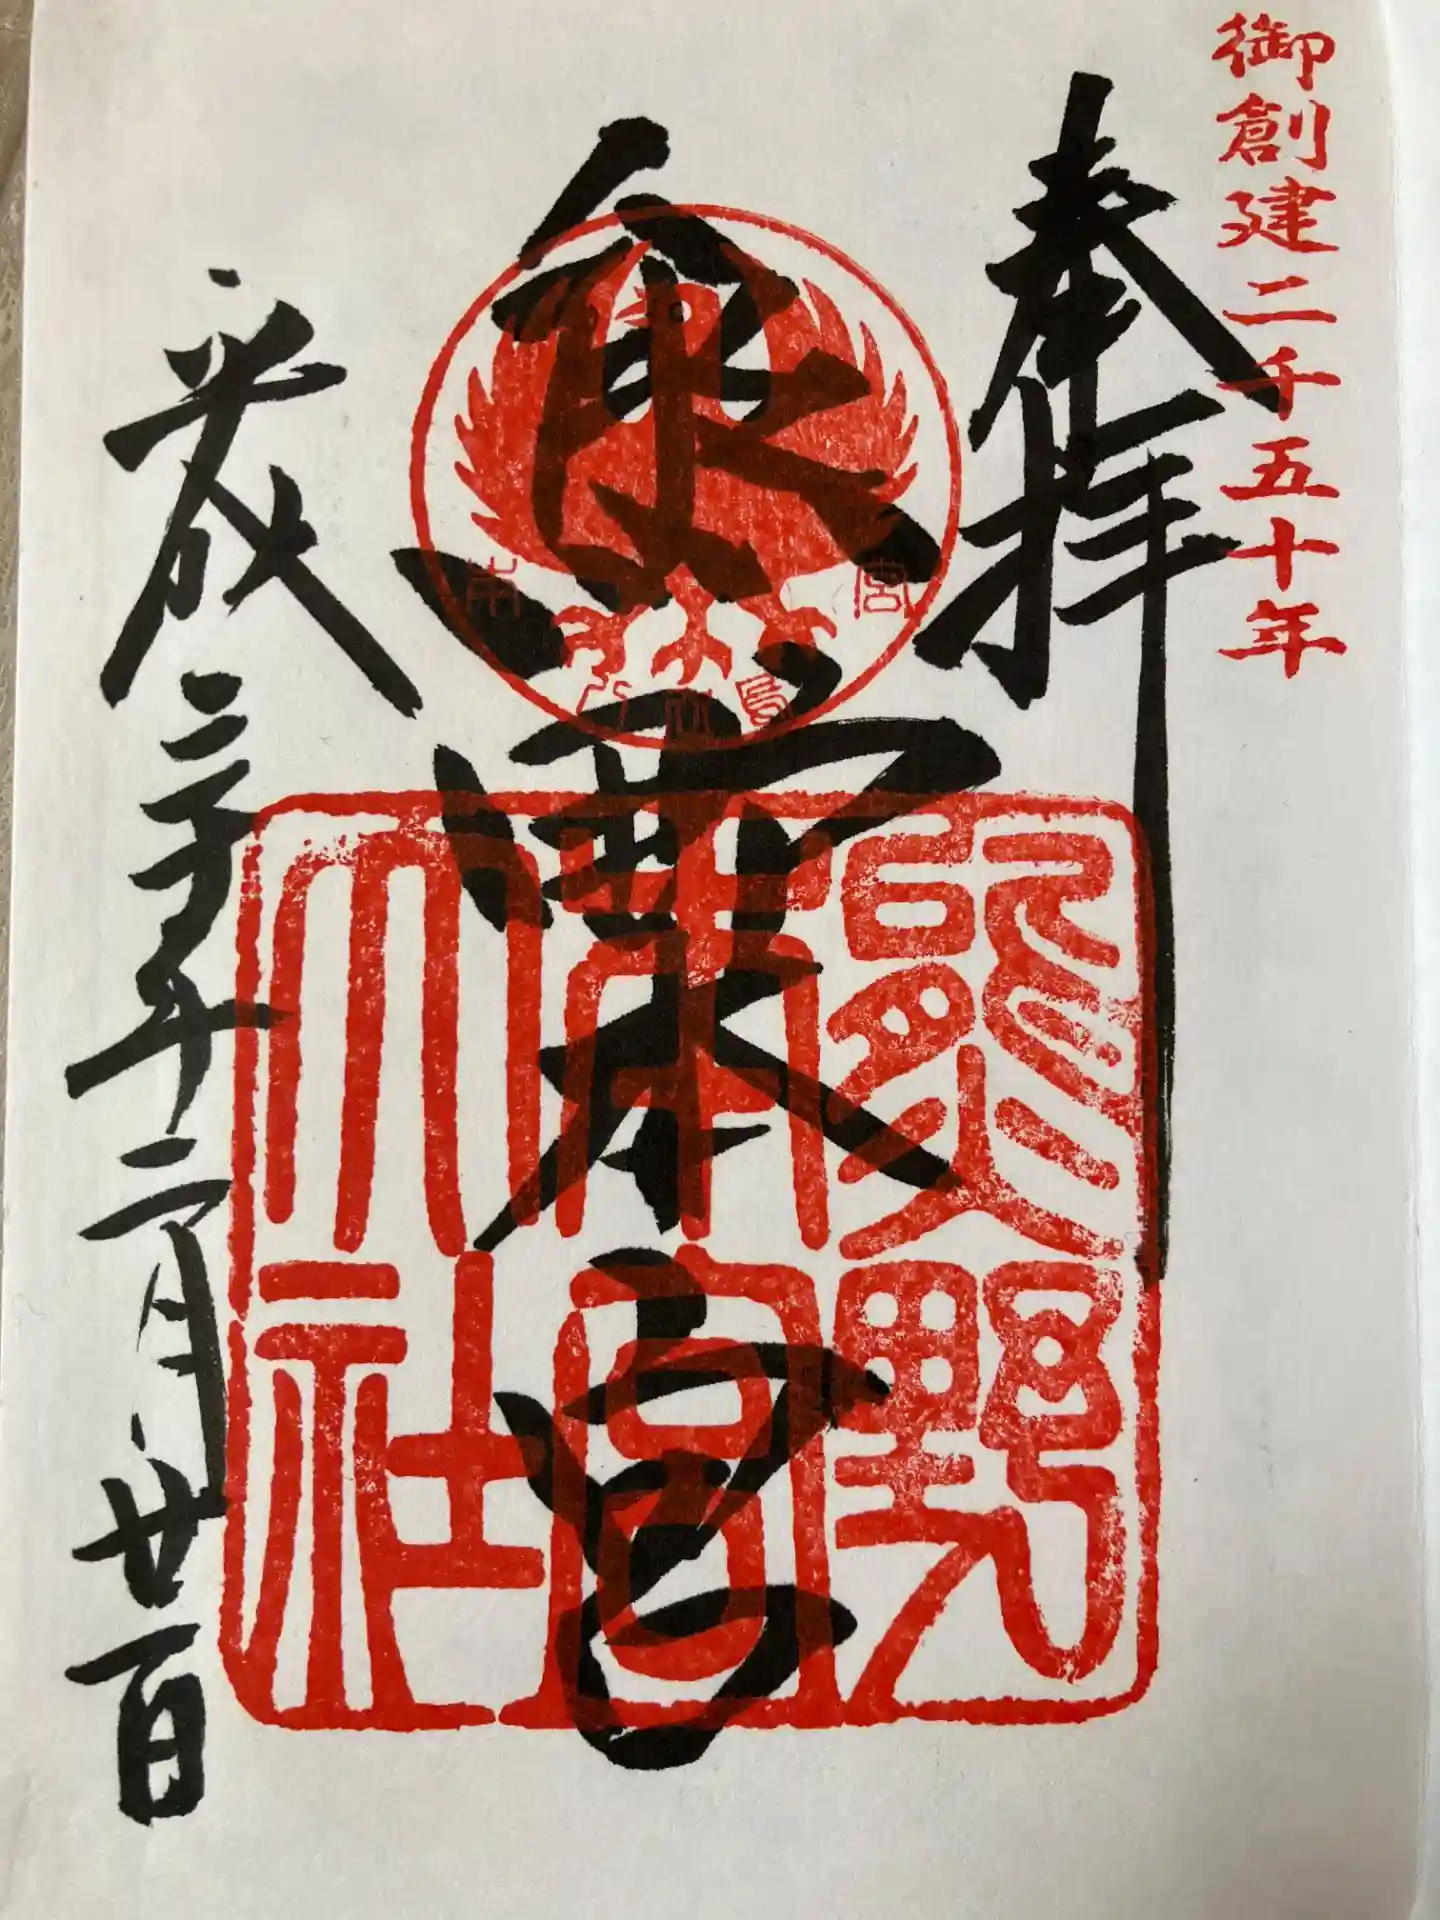 御創建二千五十年
奉拝
本宮
平成三十年十二月廿一日
熊野
本宮
大社